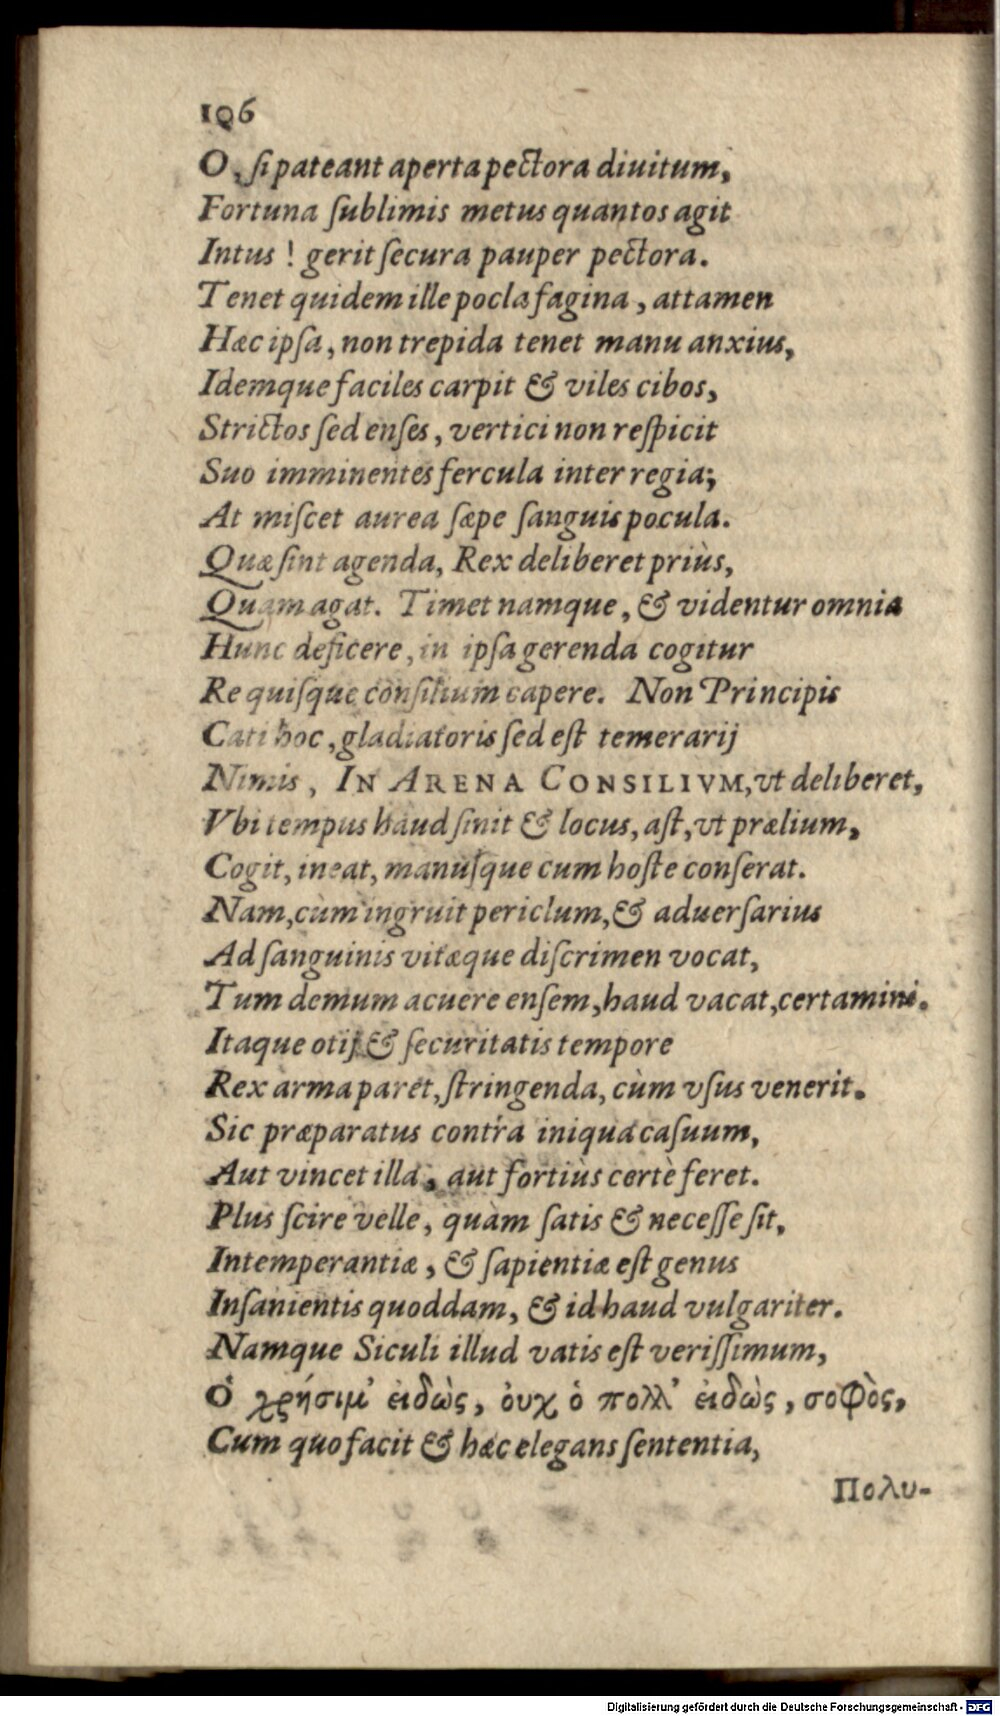 196
O, ſi pateant aperta pectora diuitum,
Fortuna ſublimis metus quantos agit
Intus! gerit ſecura pauper pectora.
Tenet quidem ille pocla fagina, attamen
Hæc ipſa, non trepida tenet manu anxius,
Idemque faciles carpit & viles cibos,
Strictos ſed enſes, vertici non reſpicit
Suo imminentes fercula inter regia;
At miſcet aurea ſæpe ſanguis pocula.
Quæ ſint agenda, Rex deliberet priùs,
Quam agat. Timet namque, & videntur omnia
Hunc deficere, in ipſa gerenda cogitur
Re quiſque conſilium capere. Non Principis
Cati hoc, gladiatoris ſed eſt temerarij
Nimis, IN ARENA CONSILIVM, vt deliberet,
Vbi tempus haud ſinit & locus, aſt, vt prælium,
Cogit, ineat, manuſque cum hoſte conſerat.
Nam, cum ingruit periclum, & aduerſarius
Ad ſanguinis vitæque diſcrimen vocat,
Tum demum acuere enſem, haud vacat, certamini.
Itaque otij & ſecuritatis tempore
Rex arma paret, ſtringenda, cùm vſus venerit.
Sic præparatus contra iniqua caſuum,
Aut vincet illa, aut fortiùs certè feret.
Plus ſcire velle, quàm ſatis & neceſſe ſit,
Intemperantiæ, & ſapientiæ eſt genus
Inſanientis quoddam, & id haud vulgariter.
Namque Siculi illud vatis eſt veriſſimum,
Ὁ χρήσιμ' ἐιδὼς, ὀυχ ὁ πολλ' ἐιδὼς, σοφὸς,
Cum quo facit & hæc elegans ſententia,
Πολυ-
Digitalisierung gefördert durch die Deutsche Forschungsgemeinschaft - DFG